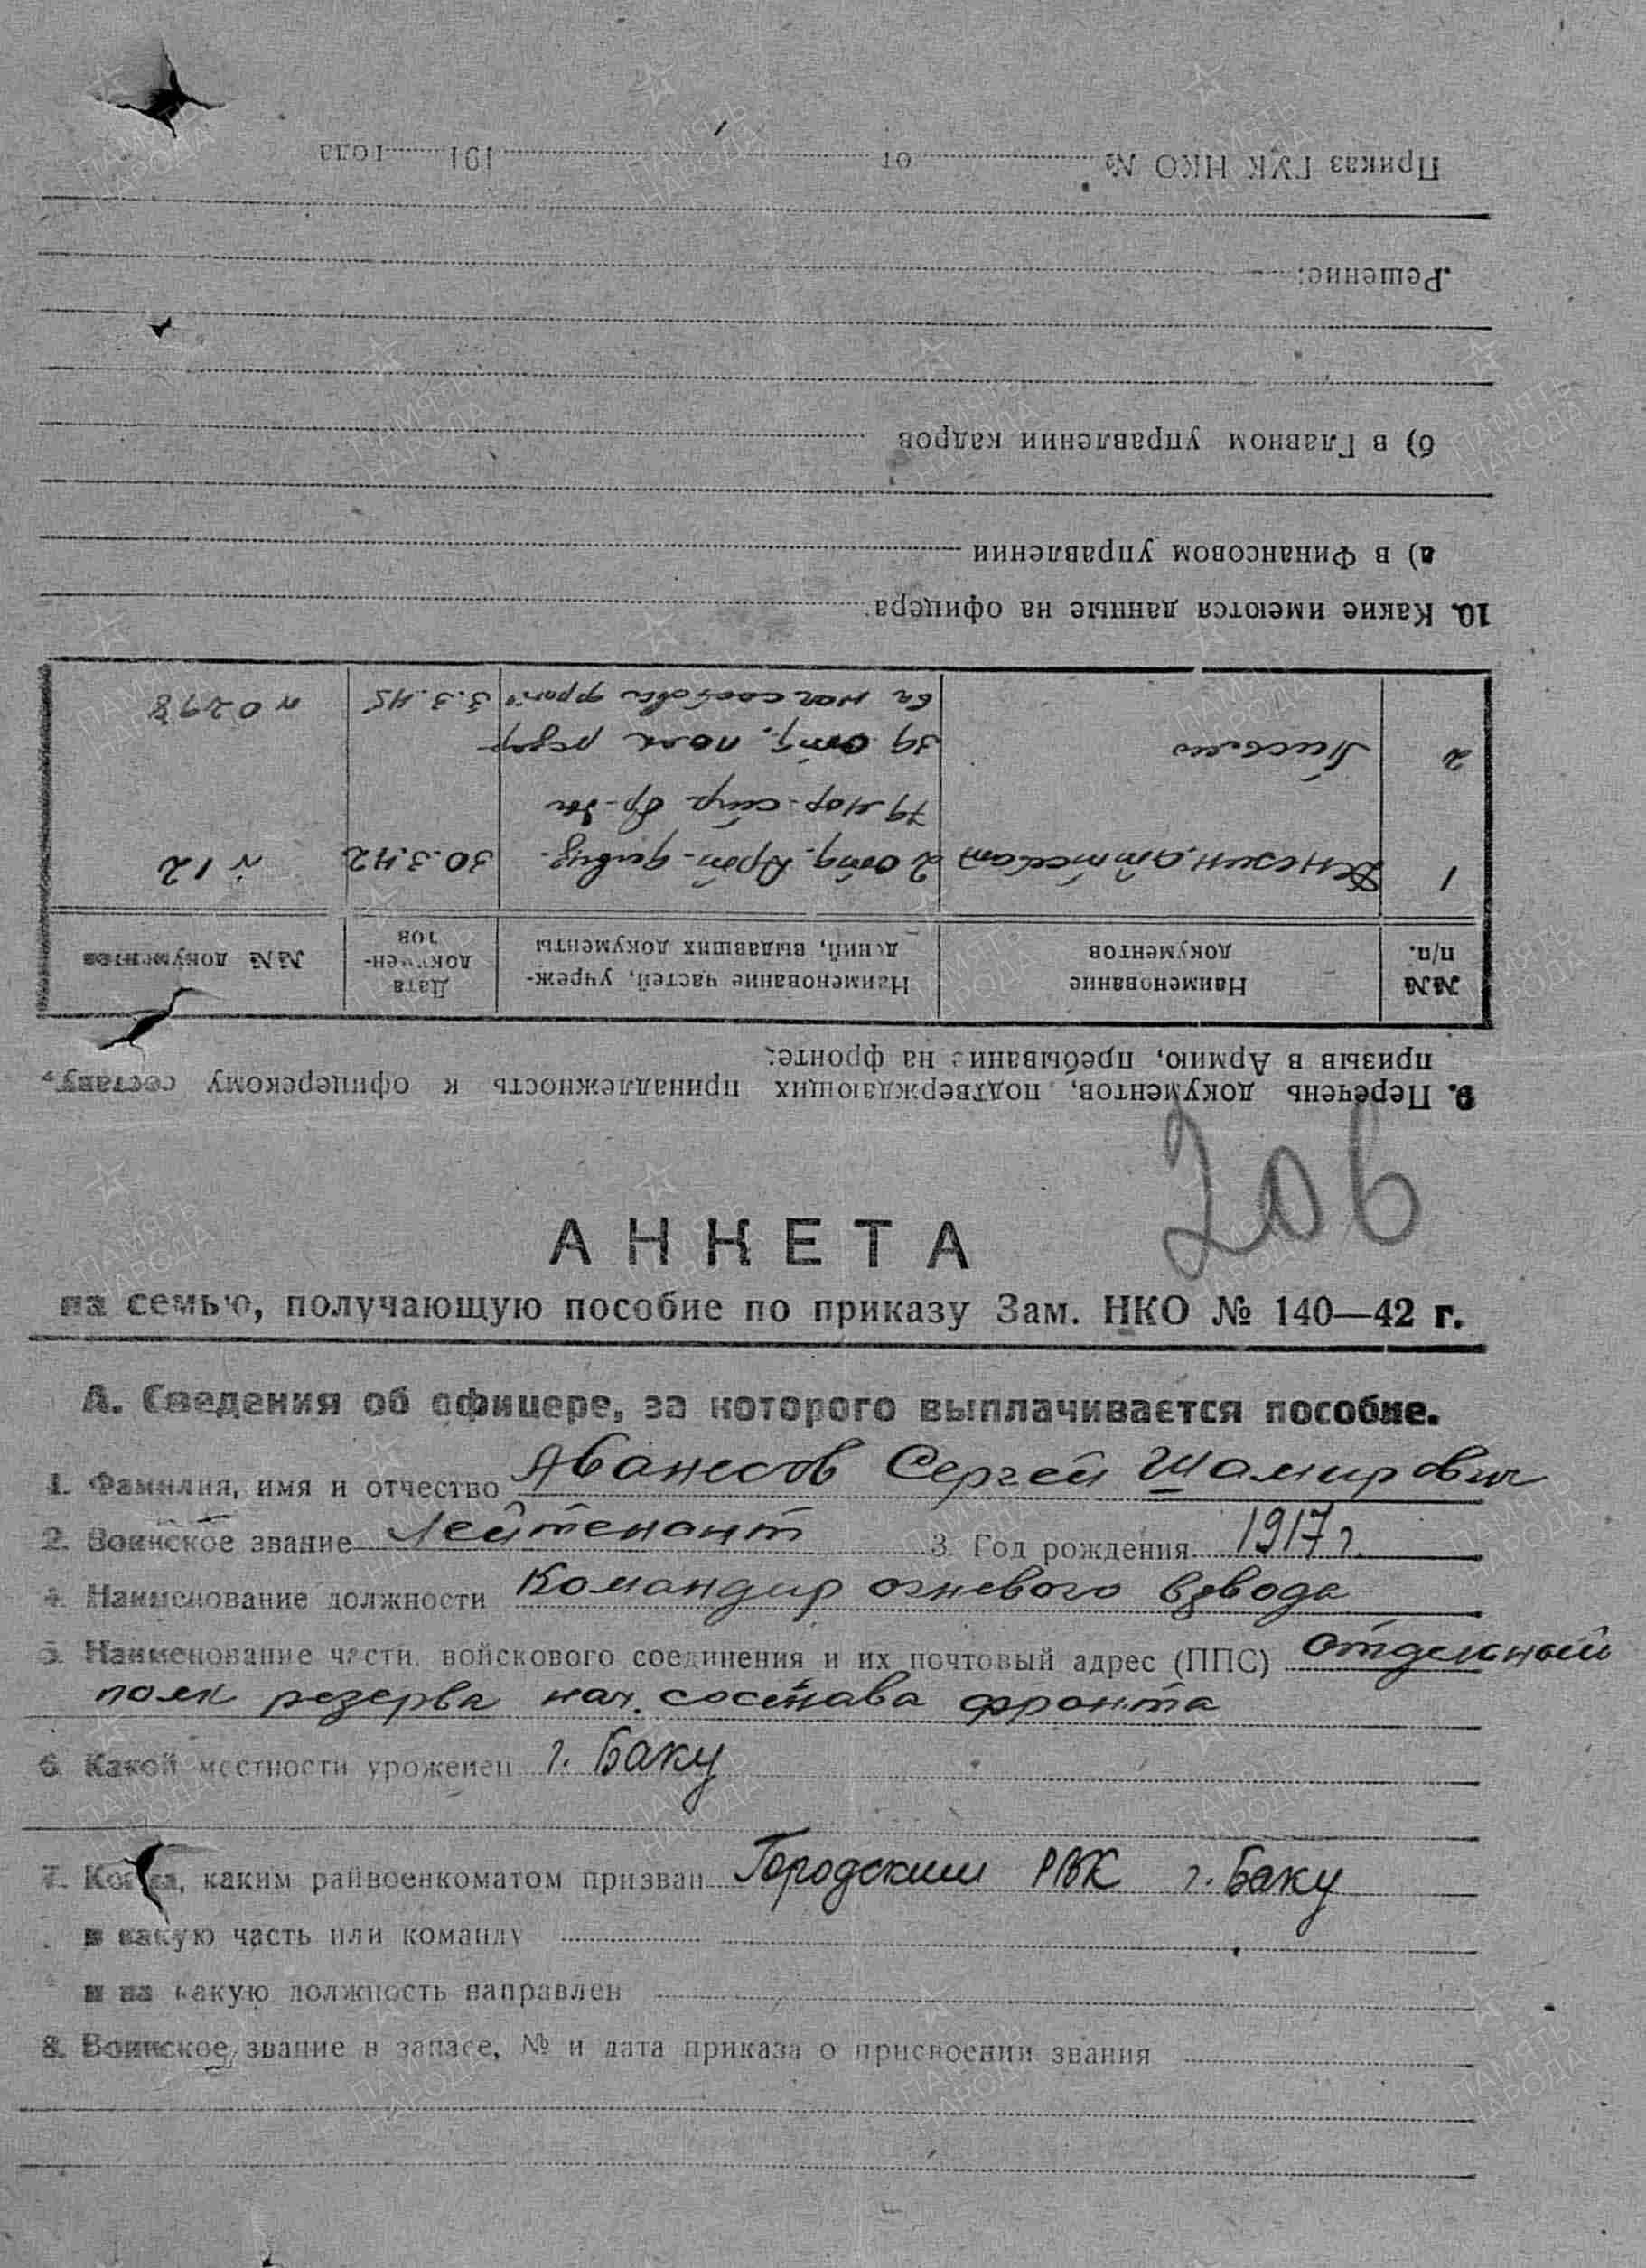 206
АНКЕТА
на семью, получающую пособие по приказу Зам. НКО № 140—42 г.
А. Сведения об офицере, за которого выплачивается пособие.
1. Фамилия, имя и отчество Аванесов Сергей Шамирович
2. Воинское звание Лейтенант 3. Год рождения 1917 г.
4. Наименование должности Командир огневого взвода
5. Наименование части, войскового соединения и их почтовый адрес (ППС) отдельный
полк резерва нач. состава фронта
6. Какой местности уроженец г. Баку
7. Когда, каким райвоенкоматом призван Городским РВК г. Баку
в какую часть или команду
и на какую должность направлен
8. Воинское звание в запасе, № и дата приказа о присвоении звания
9. Перечень документов, подтверждающих принадлежность к офицерскому составу,
призыв в Армию, пребывание на фронте:
№№ п/п. Наименование документов Наименование частей, учреждений, выдавших документы Дата документов №№ документов
1 Денежн. аттестат 2 отд. Арт. дивиз. 30.3.42 № 12
79 мор. стр. бр-ды
2 Письмо 39 отд. полк резер-
ва нач состава фрон 3.3.45 № 0298
10. Какие имеются данные на офицера:
а) в Финансовом управлении
б) в Главном управлении кадров
Решение:
Приказ ГУК НКО № от 191 года
ПАМЯТЬ НАРОДА